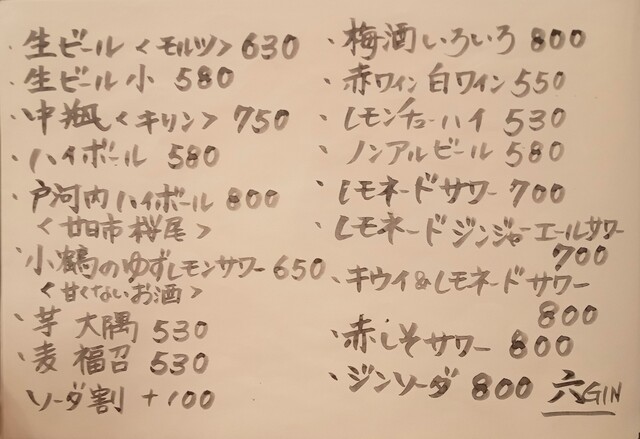 ・生ビール＜モルツ＞ 630
・生ビール 小 580
・中瓶＜キリン＞ 750
・ハイボール 580
・戸河内ハイボール 800
＜廿日市 桜尾＞
・小鶴のゆずレモンサワー 650
＜甘くないお酒＞
・芋 大隅 530
・麦 福召 530
ソーダ割 +100
・梅酒いろいろ 800
・赤ワイン 白ワイン 550
・レモンチューハイ 530
・ノンアルビール 580
・レモネードサワー 700
・レモネードジンジャーエールサワー
700
・キウイ&レモネードサワー
800
・赤しそサワー 800
・ジンソーダ 800 六GIN